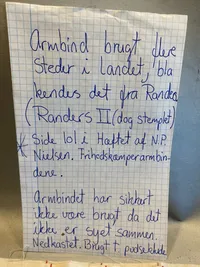 Armbind brugt flere
Steder i Landet, bla
kendes det fra Randers
(Randers II (dog stemplet)
* Side 101 i Hæftet af N.P.
Nielsen. Frihedskæmperarmbin-
dene.
Armbindet har sikkert
ikke være brugt da det
ikke er syet sammen.
Nedkastet. Brugt t